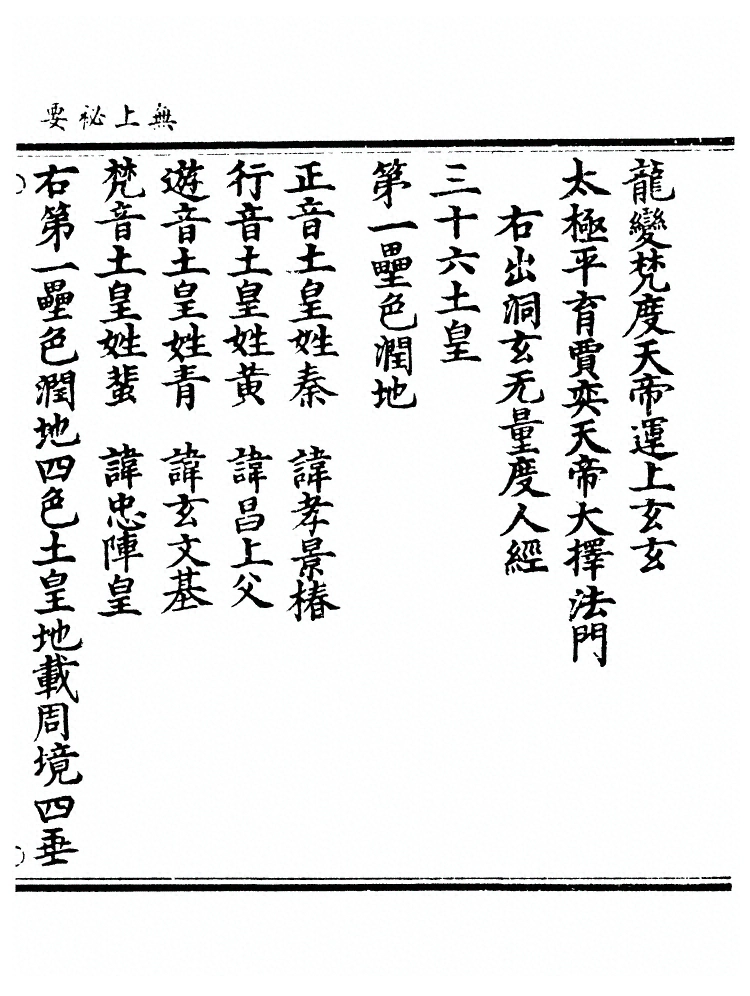 無上祕要
龍變梵度天帝運上玄玄
太極平育賈奕天帝大擇法門
右出洞玄无量度人經
三十六土皇
第一壘色潤地
正音土皇姓秦　諱孝景椿
行音土皇姓黃　諱昌上父
遊音土皇姓青　諱玄文基
梵音土皇姓蜚　諱忠陣皇
右第一壘色潤地四色土皇地載周境四垂